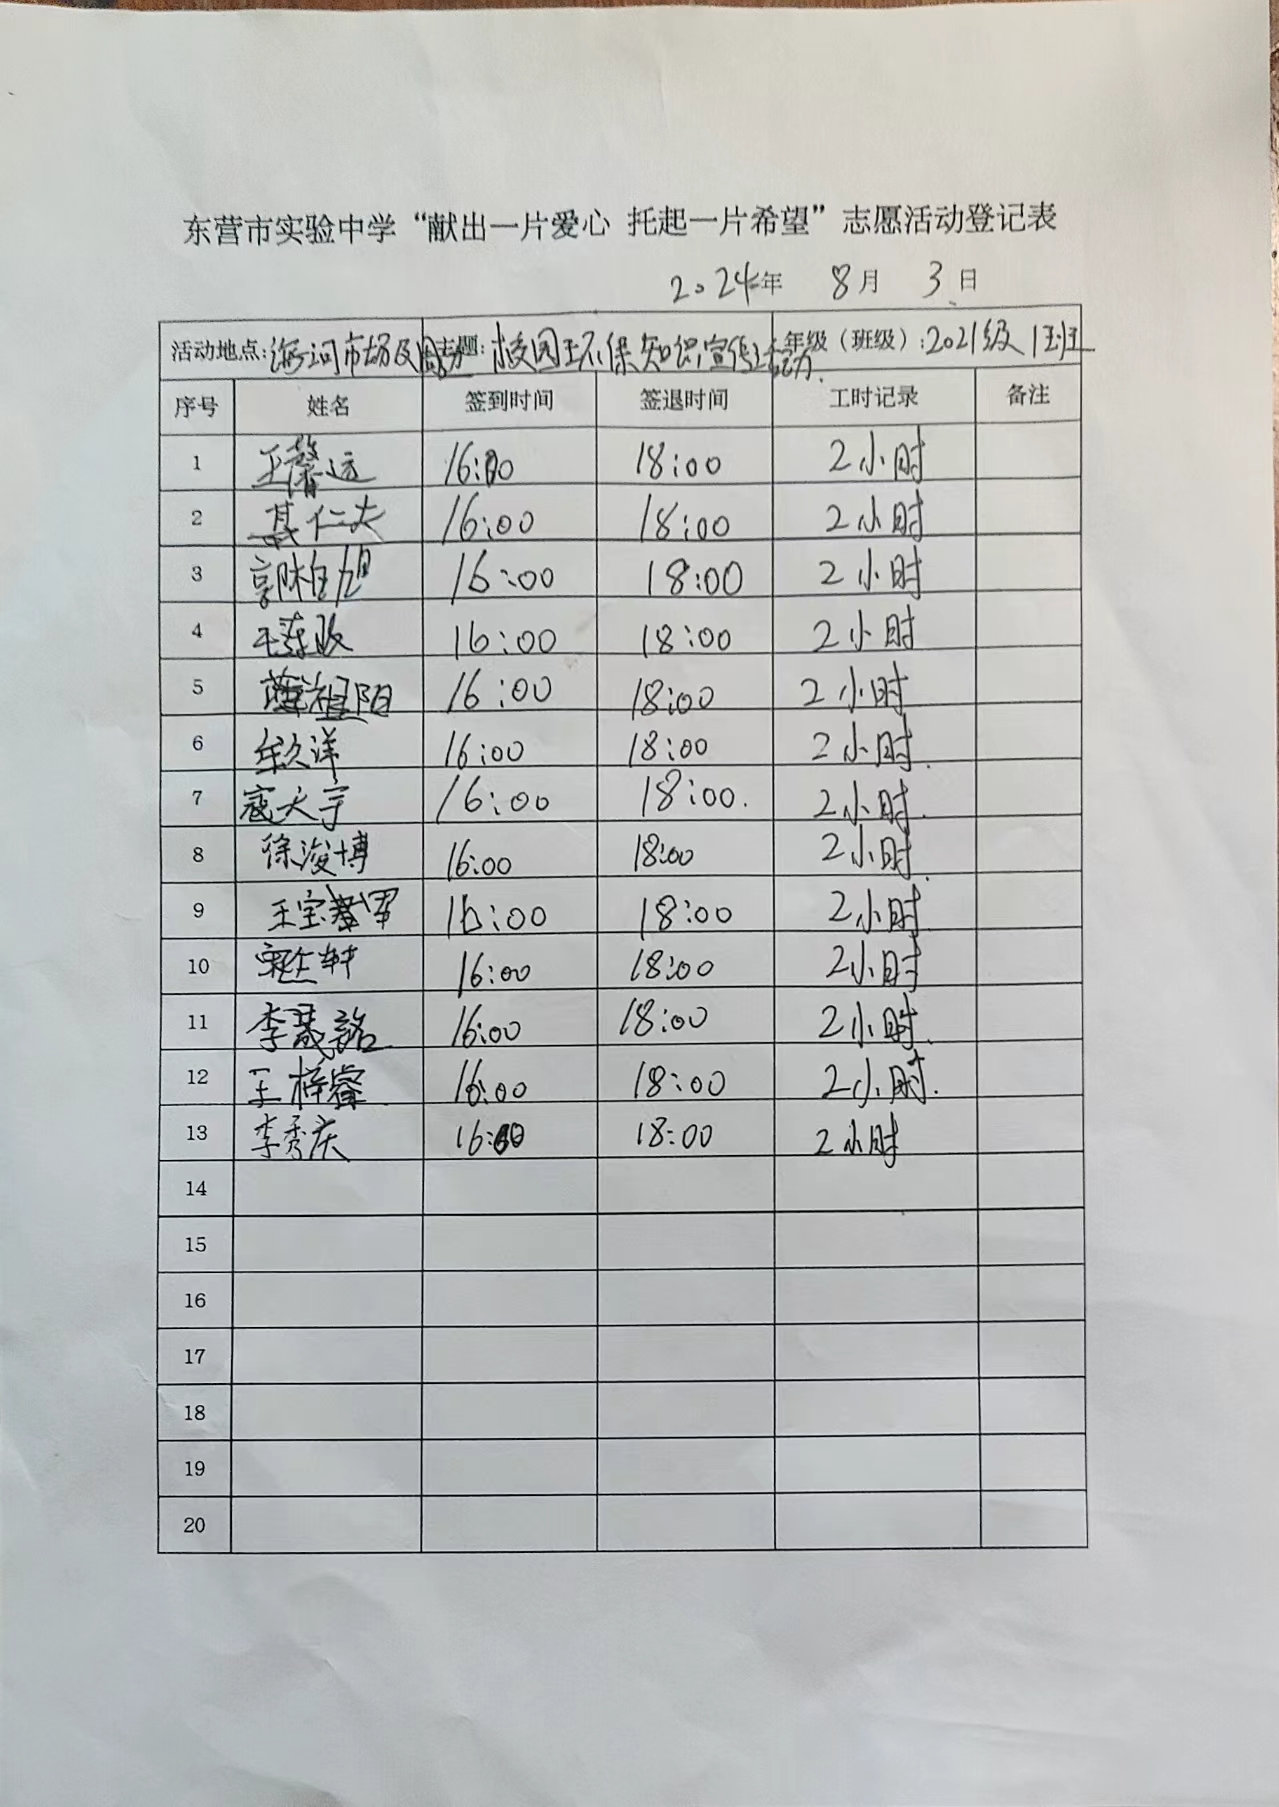 东营市实验中学“献出一片爱心 托起一片希望”志愿活动登记表
2024年 8月 3日
活动地点:海河市场及周边 主题:校园环保知识宣传活动. 年级（班级）:2021级1班
序号 姓名 签到时间 签退时间 工时记录 备注
1 王馨远 16:00 18:00 2小时
2 仁夫 16:00 18:00 2小时
3 16:00 18:00 2小时
4 16:00 18:00 2小时
5 薛祖阳 16:00 18:00 2小时
6 牟久洋 16:00 18:00 2小时.
7 寇天宇 16:00 18:00. 2小时.
8 徐浚博 16:00 18:00 2小时.
9 王宝 16:00 18:00 2小时
10 轩 16:00 18:00 2小时
11 李晟铭 16:00 18:00 2小时.
12 王梓睿 16:00 18:00 2小时.
13 李秀庆 16:00 18:00 2小时
14
15
16
17
18
19
20